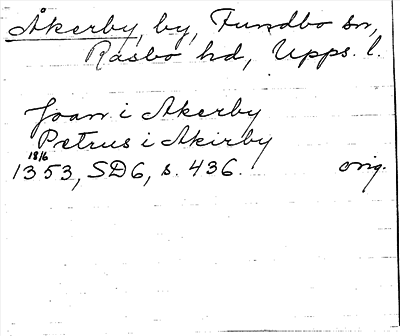 Åkerby, by, Funbo sn,
Rasbo hd, Upps. l.
Joan i Akerby
Petrus i Akirby
18/6
1353, SD6, s. 436. orig.